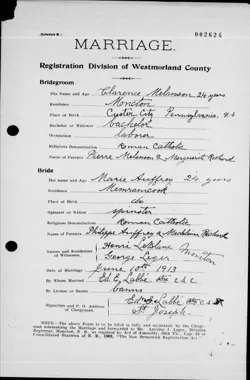 (Schedule B.)
002624
MARRIAGE.
Registration Division of Westmorland County
Bridegroom
His Name and Age Clarence Melanson 24 years
Residence Moncton
Place of Birth Oyster City Pennsylvania U S
Bachelor or Widower bachelor
Occupation laborer
Religious Denomination Roman Catholic
Name of Parents Pierre Melanson & Marguerite Richard
Bride
Her name and Age Marie Auffrey 24 years
Residence Memramcook
Place of Birth do
Spinster or Widow spinster
Religious Denomination Roman Catholic
Name of Parents Philippe Auffrey & Richard
Names and Residences of Witnesses, Henri LeBlanc Moncton
George Leger
Date of Marriage June 10th 1913
By Whom Married Ed. Labbé
By License or Banns banns
Signature and P. O. Address of Clergyman. Ed. Labbé
St Joseph
NOTE.—The above Form is to be filled in fully and accurately by the Clergyman